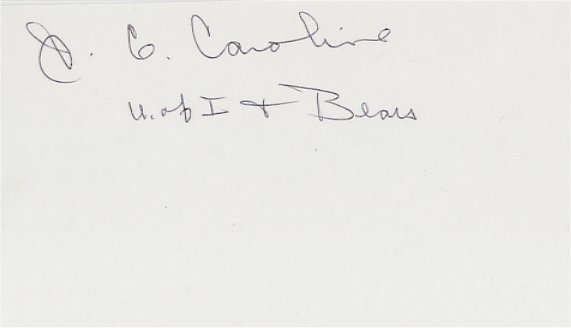 J. C. Caroline
U. of I + Bears